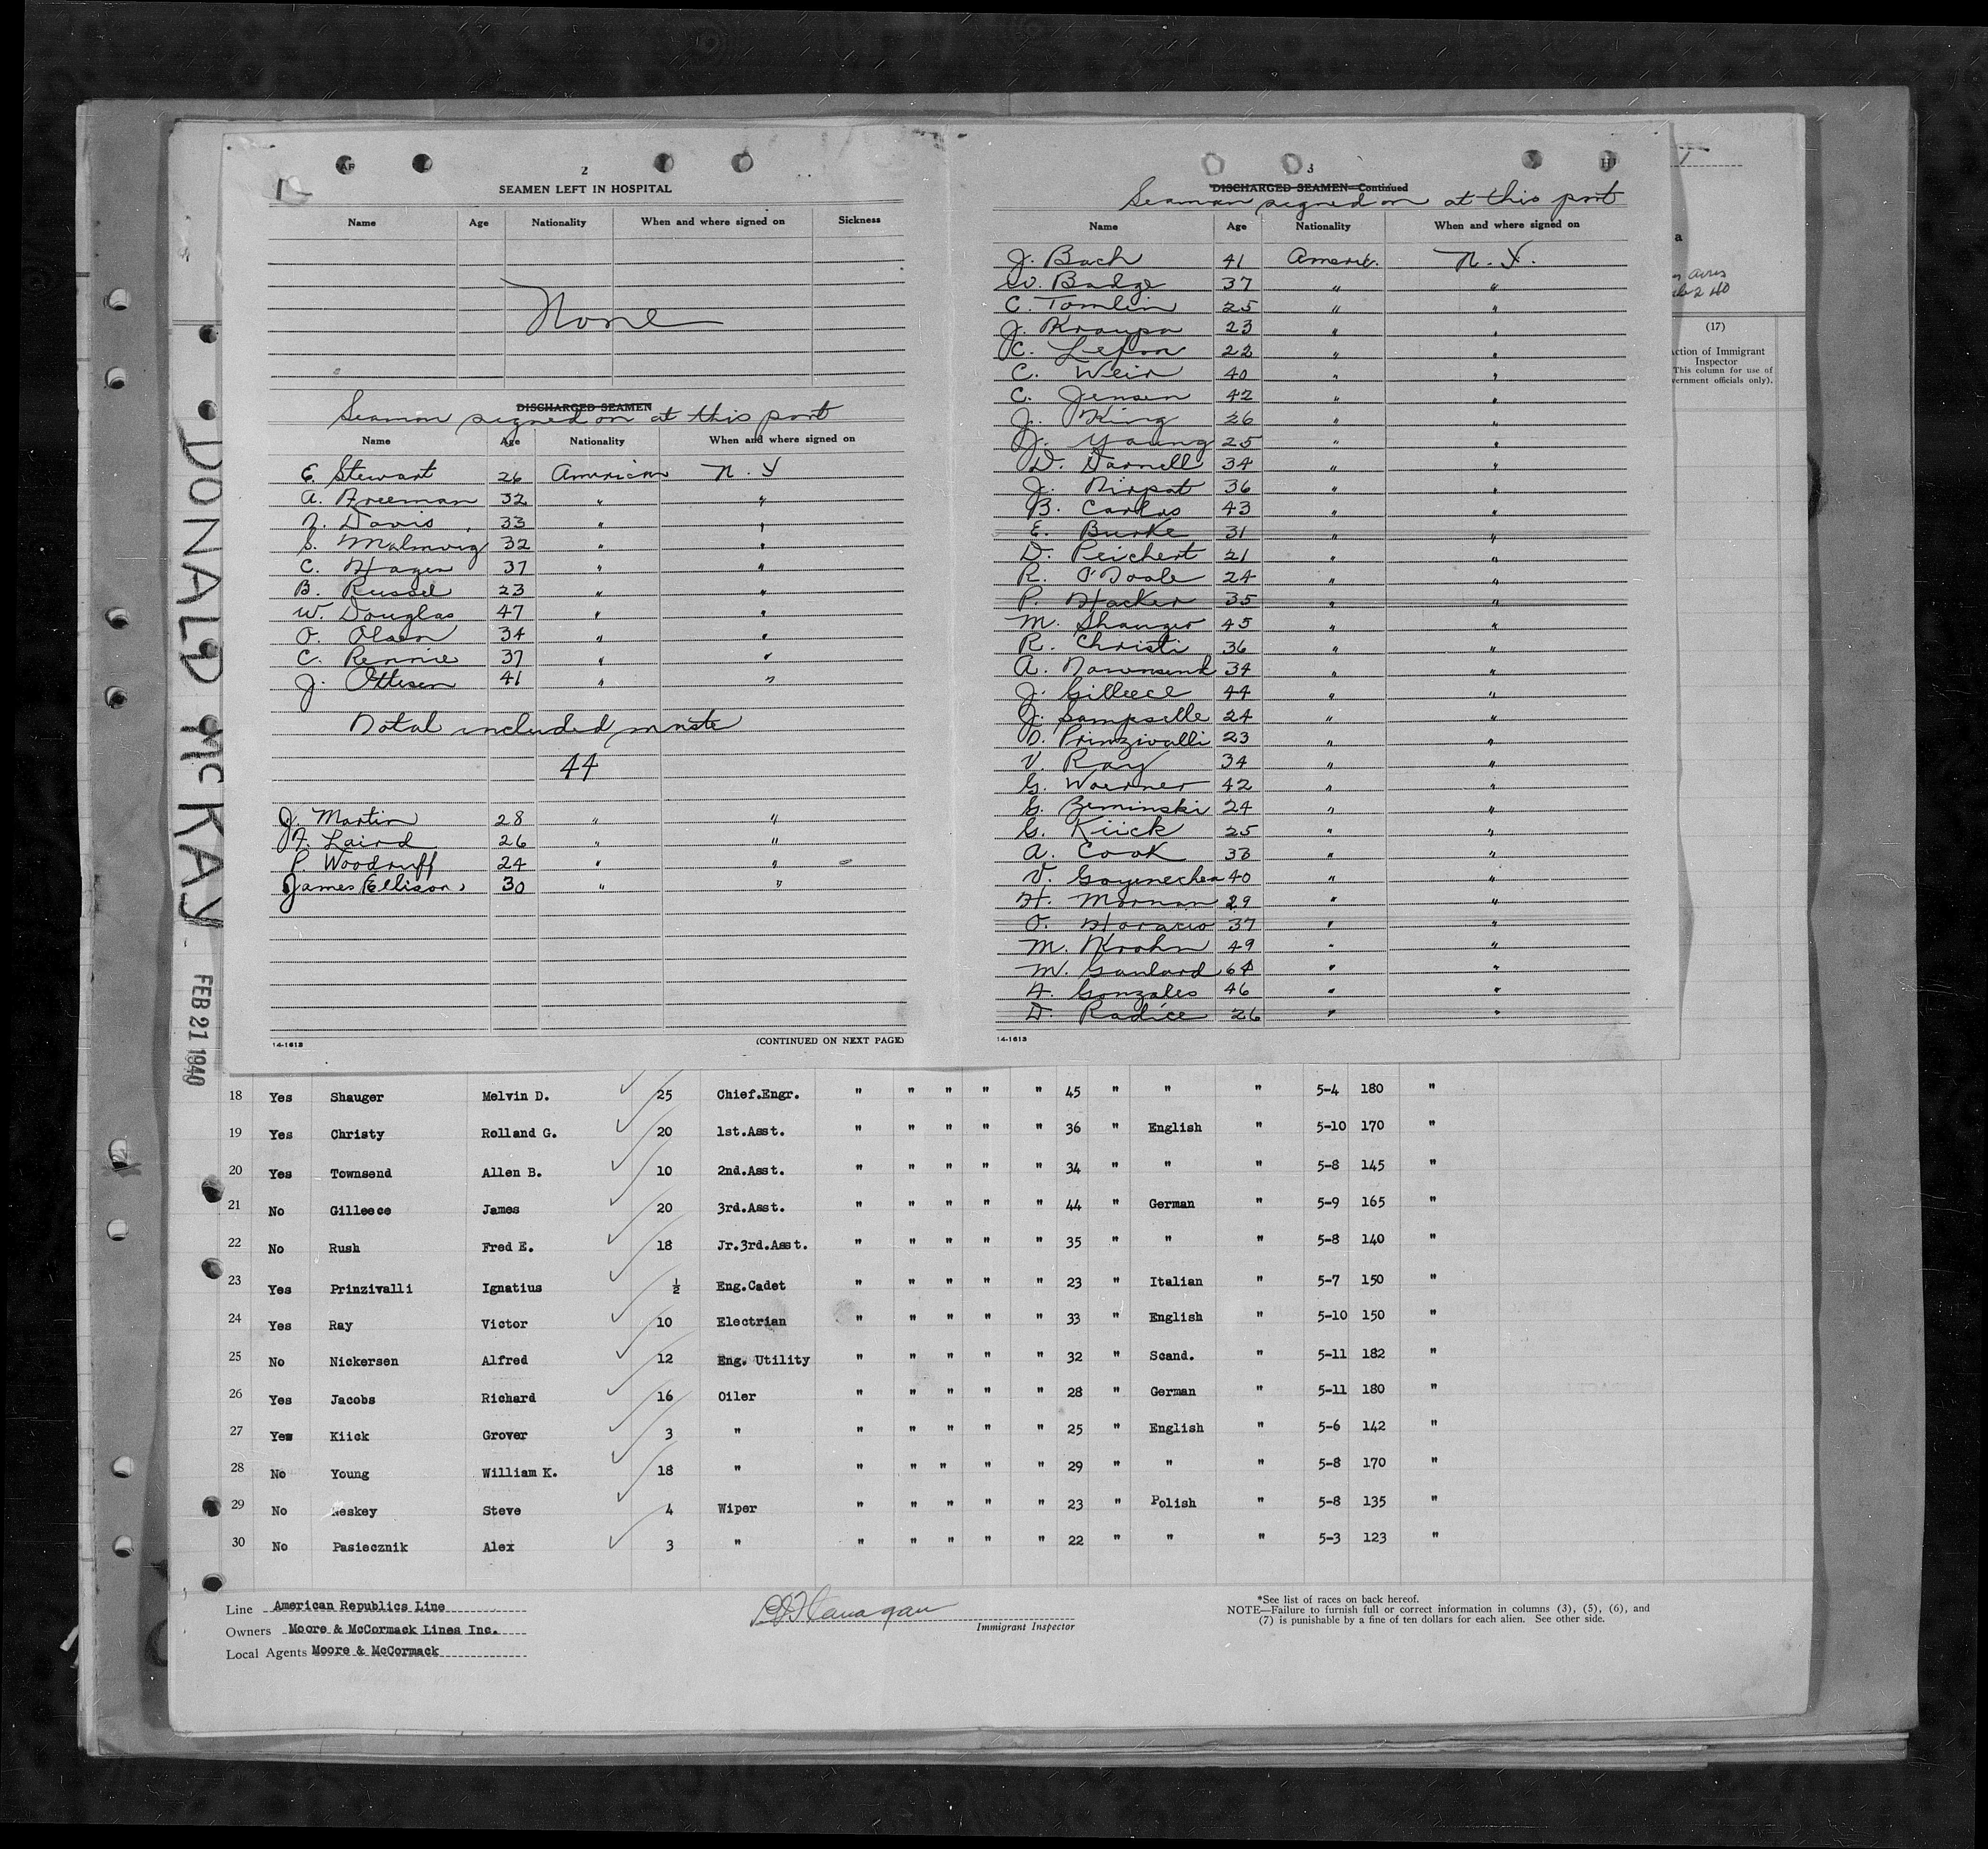 2
SEAMEN LEFT IN HOSPITAL
Name Age Nationality When and where signed on Sickness
None
DISCHARGED SEAMEN
Seaman signed on at this port
Name Age Nationality When and where signed on
E. Stewart 26 American N. Y
A. Freeman 32 " "
Davis 33 " "
S. Malmvig 32 " "
C. Hagen 37 " "
B. Russel 23 " "
W. Douglas 47 " "
O. Olsen 34 " "
C. Rennie 37 " "
J. Ottesen 41 " "
Total included
44
J. Martin 28 " "
F. Laird 26 " "
P. Woodruff 24 " "
James Ellison 30 " "
(CONTINUED ON NEXT PAGE)
14-1613
3
DISCHARGED SEAMEN—Continued
Seaman signed on at this port
Name Age Nationality When and where signed on
J. Bach 41 Americ. N. Y.
W. Badge 37 " "
C. Tomlin 25 " "
J. Kraupa 23 " "
C. Lefon 22 " "
C. Weir 40 " "
C. Jensen 42 " "
J. King 26 " "
J. Young 25 " "
D. Darnell 34 " "
J. 36 " "
B. Carlos 43 " "
E. Burke 31 " "
D. Peichert 21 " "
R. O'Toole 24 " "
P. Hacker 35 " "
M. Shauger 45 " "
R. Christi 36 " "
A. Townsend 34 " "
J. Gilleece 44 " "
J. Sampselle 24 " "
Prinzivalli 23 " "
V. Ray 34 " "
G. Woerner 42 " "
G. Zeminski 24 " "
G. Kiick 25 " "
A. Cook 33 " "
V. Goyenechea 40 " "
H. Mornan 29 " "
O. Horacio 37 " "
M. Krohn 49 " "
M. Gaulard 64 " "
A. Gonzales 46 " "
D. Radice 26 " "
14-1613
a
(17)
Action of Immigrant
Inspector
This column for use of
vernment officials only).
DONALD McKAY
FEB 21 1940
18 Yes Shauger Melvin D. 25 Chief.Engr. " " " " " 45 " " " 5-4 180 "
19 Yes Christy Rolland G. 20 1st.Asst. " " " " " 36 " English " 5-10 170 "
20 Yes Townsend Allen B. 10 2nd.Asst. " " " " " 34 " " " 5-8 145 "
21 No Gilleece James 20 3rd.Asst. " " " " " 44 " German " 5-9 165 "
22 No Rush Fred E. 18 Jr.3rd.Asst. " " " " " 35 " " " 5-8 140 "
23 Yes Prinzivalli Ignatius ½ Eng.Cadet " " " " " 23 " Italian " 5-7 150 "
24 Yes Ray Victor 10 Electrian " " " " " 33 " English " 5-10 150 "
25 No Nickersen Alfred 12 Eng. Utility " " " " " 32 " Scand. " 5-11 182 "
26 Yes Jacobs Richard 16 Oiler " " " " " 28 " German " 5-11 180 "
27 Yes Kiick Grover 3 " " " " " " 25 " English " 5-6 142 "
28 No Young William K. 18 " " " " " " 29 " " " 5-8 170 "
29 No Neskey Steve 4 Wiper " " " " " 23 " Polish " 5-8 135 "
30 No Pasiecznik Alex 3 " " " " " " 22 " " " 5-3 123 "
Line American Republics Line
Owners Moore & McCormack Lines Inc.
Local Agents Moore & McCormack
Flanagan
Immigrant Inspector
*See list of races on back hereof.
NOTE—Failure to furnish full or correct information in columns (3), (5), (6), and
(7) is punishable by a fine of ten dollars for each alien. See other side.